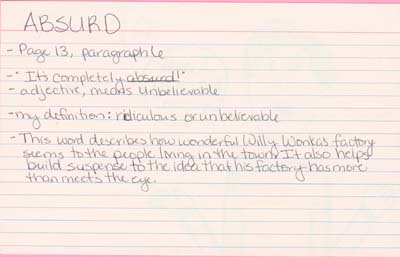 ABSURD
- Page 13, paragraph 6
- "It's completely absurd!"
- adjective, means Unbelievable
- my definition: ridiculous or unbelievable
- This word describes how wonderful Willy Wonka's factory
seems to the people living in the town. It also helps
build suspense to the idea that his factory has more
than meets the eye.